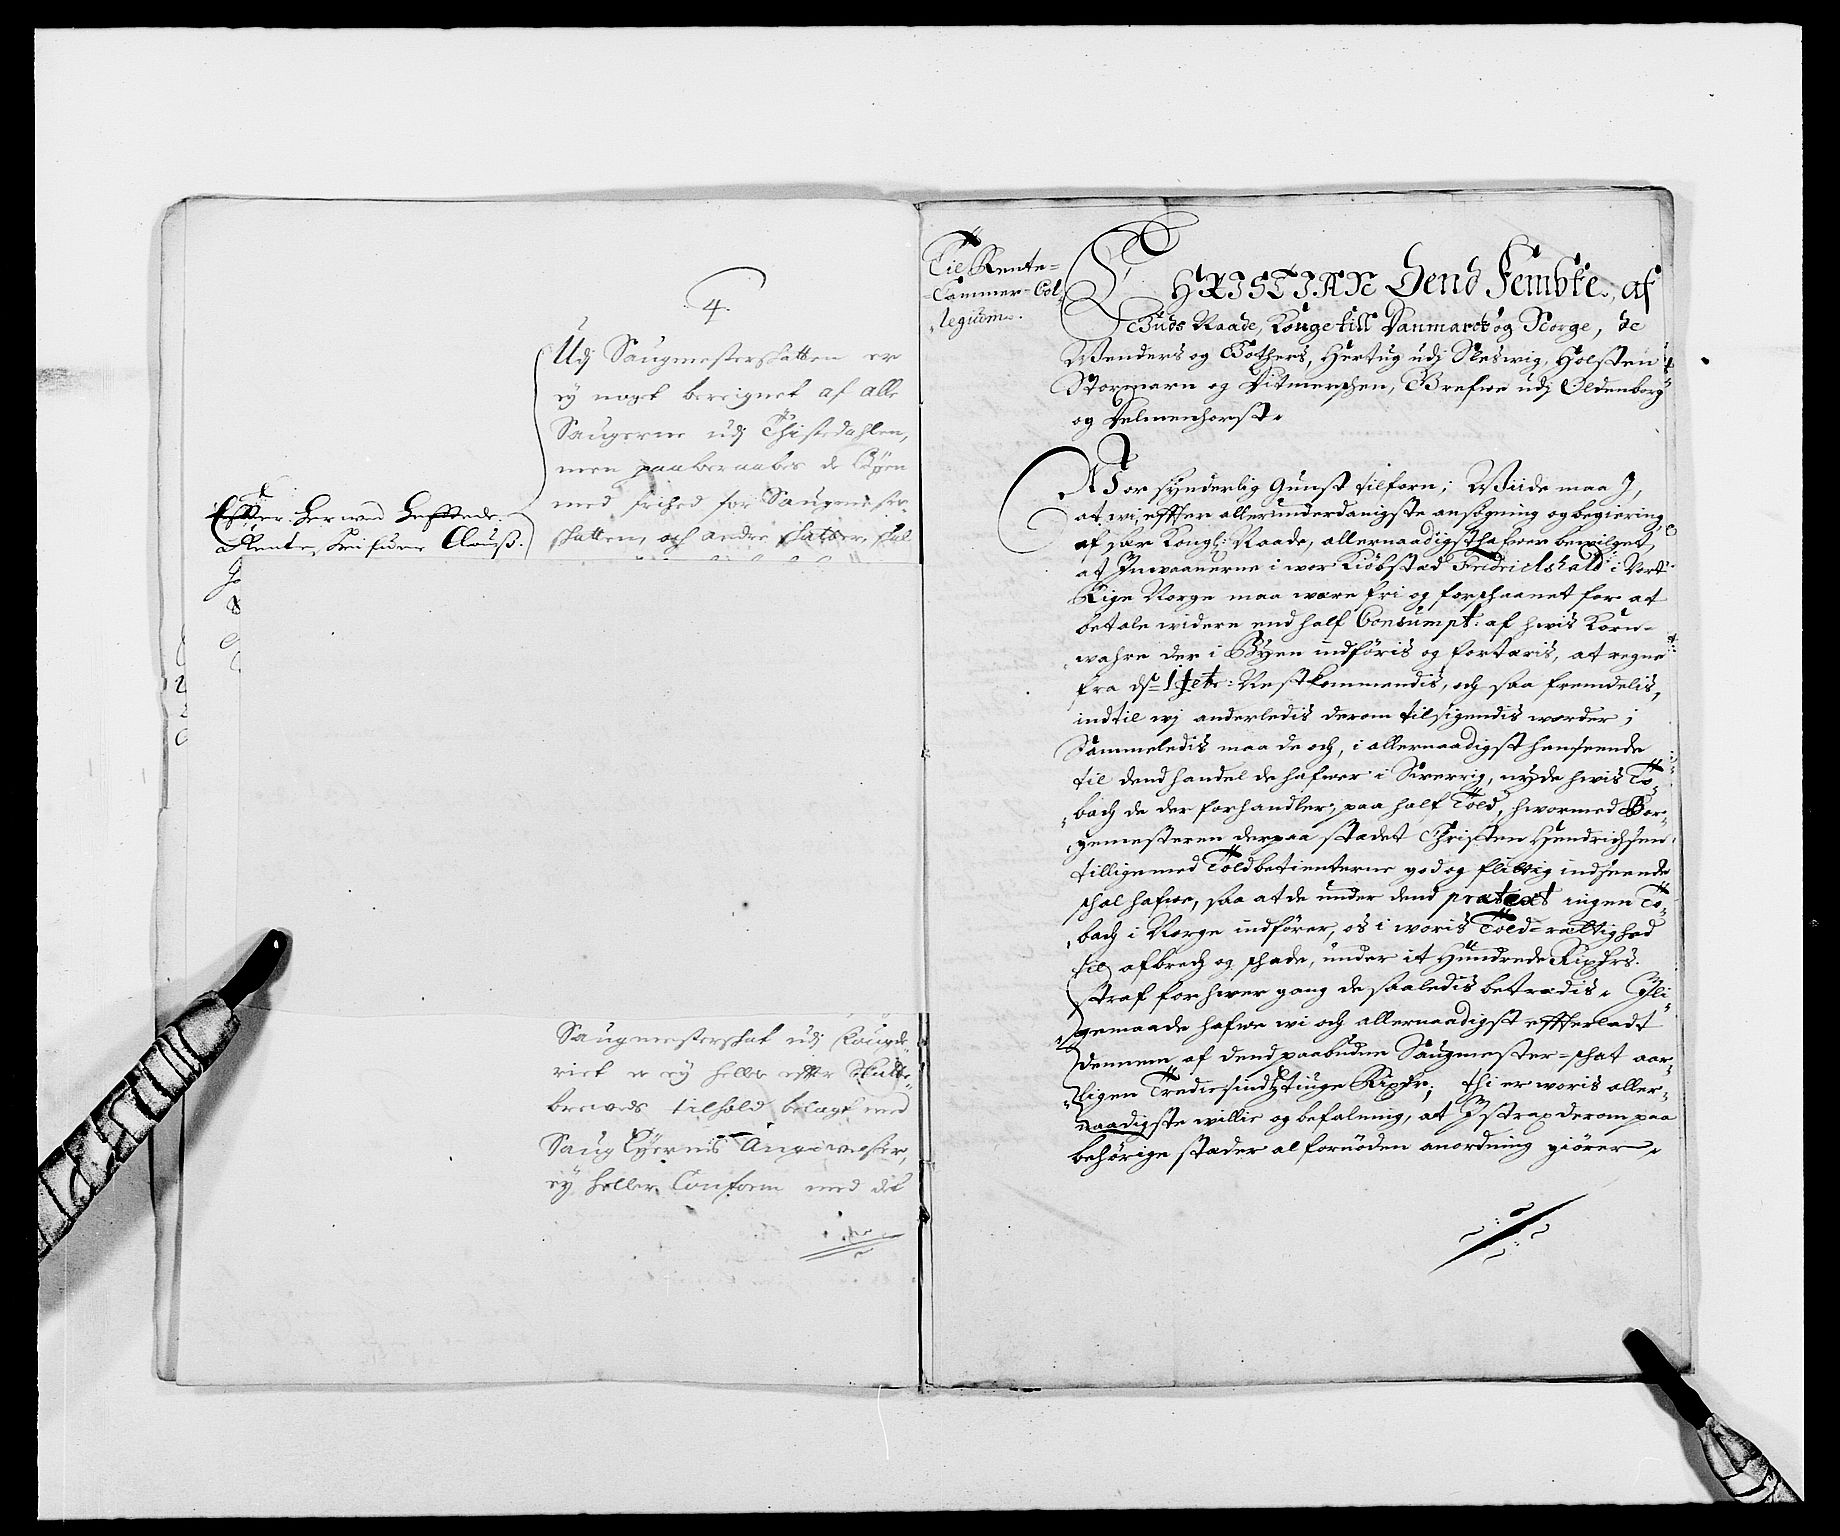 4.
Udj Saugmesterskatten er
ey noget bereignet af alle
Saugerne udj Thistedahlen,
men paaberaabes de Byen
med frihed for Saugmester
skatten, och andre skatter, skal
Effter herwed hefftede
Rentes
Saugmesterskat udj
er ey heller effter
breweds tilhold belagt med
Saug
ey heller Conform med det
Til Rente=
=Cammer=Col,
,legium.
CHRISTIAN Dend Fembte, af
Guds Naade, Konge till Danmarck og Norge, de
Wenders og Gothers, Hertug udj Sleswig, Holsten
Stormarn og Ditmerschen, Grefwe udj Oldenborg
og Delmenhorst.
Wor synderlig Gunst tilforn; Wiide maa J,
at wi, effter allerunderdanigste ansøgning og begiering
af sær Kongl: Naade, allernaadigst hafwer bewilget,
at Jnwaanerne i wor Kiøbstad Fredrichshald i Vort
Rige Norge maa were fri og forschaanet for at
betale widere end half Consumpt: af hwis Korn=
wahre der i Byen indføris og fortæris, at regne
fra Nestkommendis, och saa fremdelis,
indtil wj anderledis derom tilsigendis worder;
Sammeledis maa de och, i allernaadigst henseende
til dend handel de hafwer i Swerrig, nyde hwis To,
,bach de der forhandler, paa half Told, hwormed Bor,
,gemesteren derpaa stædet Christen Hendrichsen
tilligemed Toldbetienterne god og flittig indseende
schal hafwe, saa at de under dend prætext ingen To,
,bach i Norge indfører, os i woris Told=rættighed
til afbrech og schade, under it Hundrede Rixdrs.
straf for hwer gang de saaledis betrædis. Jli,
,gemaade hafwe wi och allernaadigst effterladt
dennem af dend paabudne Saugmester=schat aar,
,ligen Trediesindztiuge Rixdr; thi er woris aller,
,naadigste willie og befalning, at J strax derom paa
behørige stæder al fornøden anordning giører.